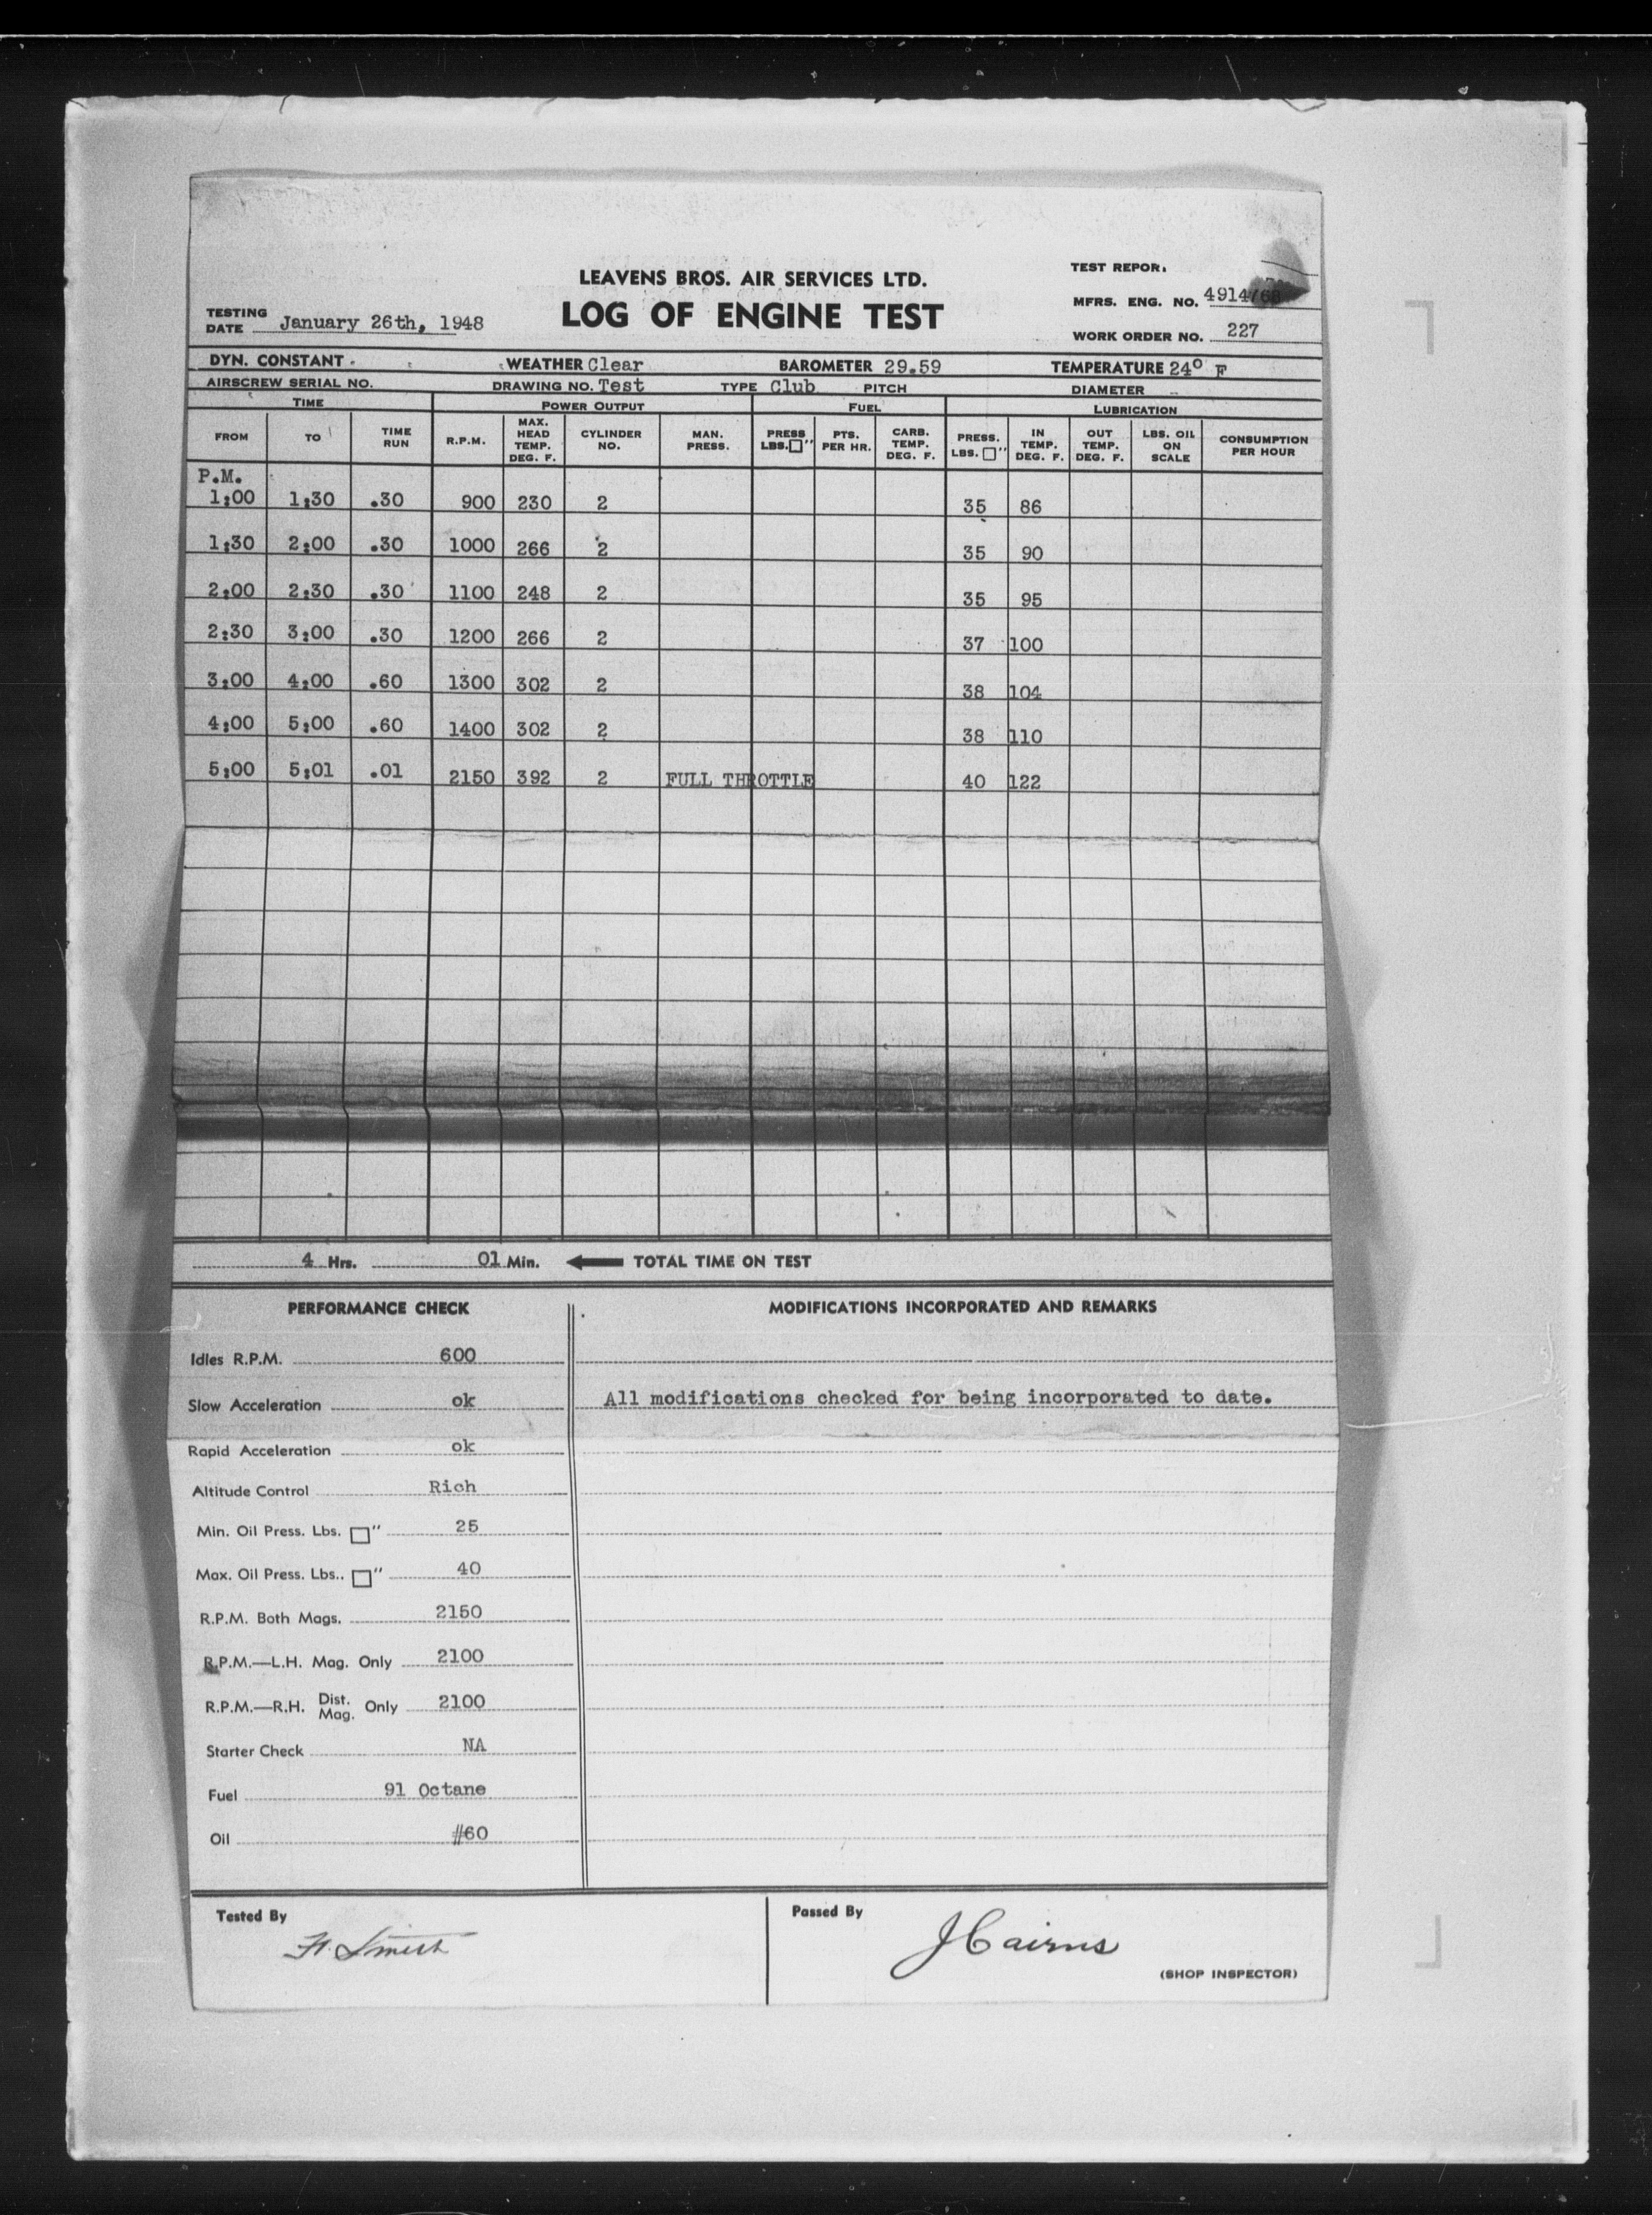 LEAVENS BROS. AIR SERVICES LTD.
LOG OF ENGINE TEST
TESTING DATE January 26th, 1948
TEST REPOR
MFRS. ENG. NO. 4914/
WORK ORDER NO. 227
DYN. CONSTANT WEATHER Clear BAROMETER 29.59 TEMPERATURE 24° F
AIRSCREW SERIAL NO. DRAWING NO. Test TYPE Club PITCH DIAMETER
TIME POWER OUTPUT FUEL LUBRICATION
FROM TO TIME RUN R.P.M. MAX. HEAD TEMP. DEG. F. CYLINDER NO. MAN. PRESS. PRESS LBS.□" PTS. PER HR. CARB. TEMP. DEG. F. PRESS. LBS. □" IN TEMP. DEG. F. OUT TEMP. DEG. F. LBS. OIL ON SCALE CONSUMPTION PER HOUR
P.M.
1:00 1:30 .30 900 230 2 35 86
1:30 2:00 .30 1000 266 2 35 90
2:00 2:30 .30 1100 248 2 35 95
2:30 3:00 .30 1200 266 2 37 100
3:00 4:00 .60 1300 302 2 38 104
4:00 5:00 .60 1400 302 2 38 110
5:00 5:01 .01 2150 392 2 FULL THROTTLE 40 122
4 Hrs. 01 Min. ← TOTAL TIME ON TEST
PERFORMANCE CHECK
Idles R.P.M. 600
Slow Acceleration ok
Rapid Acceleration ok
Altitude Control Rich
Min. Oil Press. Lbs. □" 25
Max. Oil Press. Lbs.. □" 40
R.P.M. Both Mags. 2150
R.P.M.—L.H. Mag. Only 2100
R.P.M.—R.H. Dist. Mag. Only 2100
Starter Check NA
Fuel 91 Octane
Oil #60
MODIFICATIONS INCORPORATED AND REMARKS
All modifications checked for being incorporated to date.
Tested By
H. Smith
Passed By
J Cairns
(SHOP INSPECTOR)